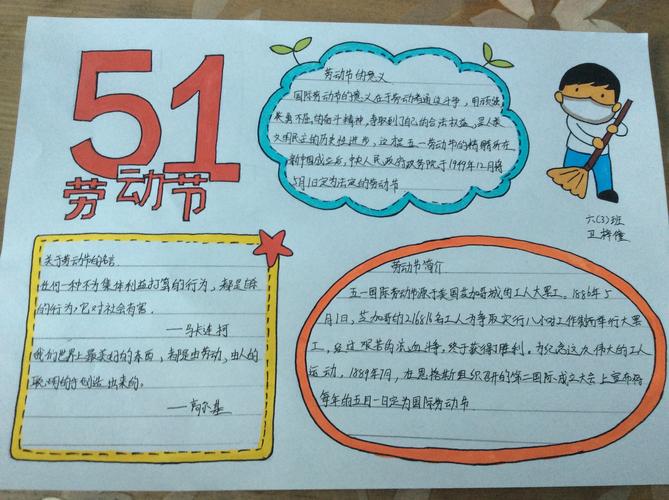 51
劳动节
劳动节的意义
国际劳动节的意义在于劳动者通过斗争,用顽强
英勇不屈的奋斗精神,争取到了自己的合法权益,是人类
文明民主的历史性进步,这才是五一劳动节的精髓所在
新中国成立后,中央人民政府政务院于1949年12月将
5月1日定为法定的劳动节
六(3)班
卫梓
关于劳动节的名言
任何一种不为集体利益打算的行为,都是自杀
的行为,它对社会有害.
——马卡连柯
我们世界上最美好的东西,都是由劳动,由人的
聪明的手创造出来的.
——高尔基
劳动节简介
五一国际劳动节源于美国芝加哥城的工人大罢工。1886年5
月1日,芝加哥的216816名工人为争取实行八小时工作制而举行大罢
工,经过艰苦的流血斗争,终于获得了胜利。为纪念这次伟大的工人
运动,1889年7月,在恩格斯组织召开的第二国际成立大会上宣布将
每年的五月一日定为国际劳动节